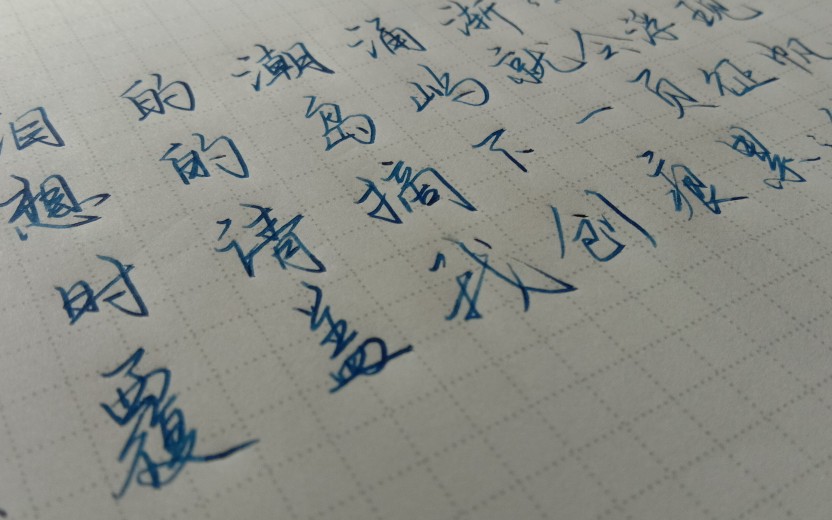 泪的潮涌渐
想的岛屿就会浮现
时请摘下一页征帆
覆盖我创痕累